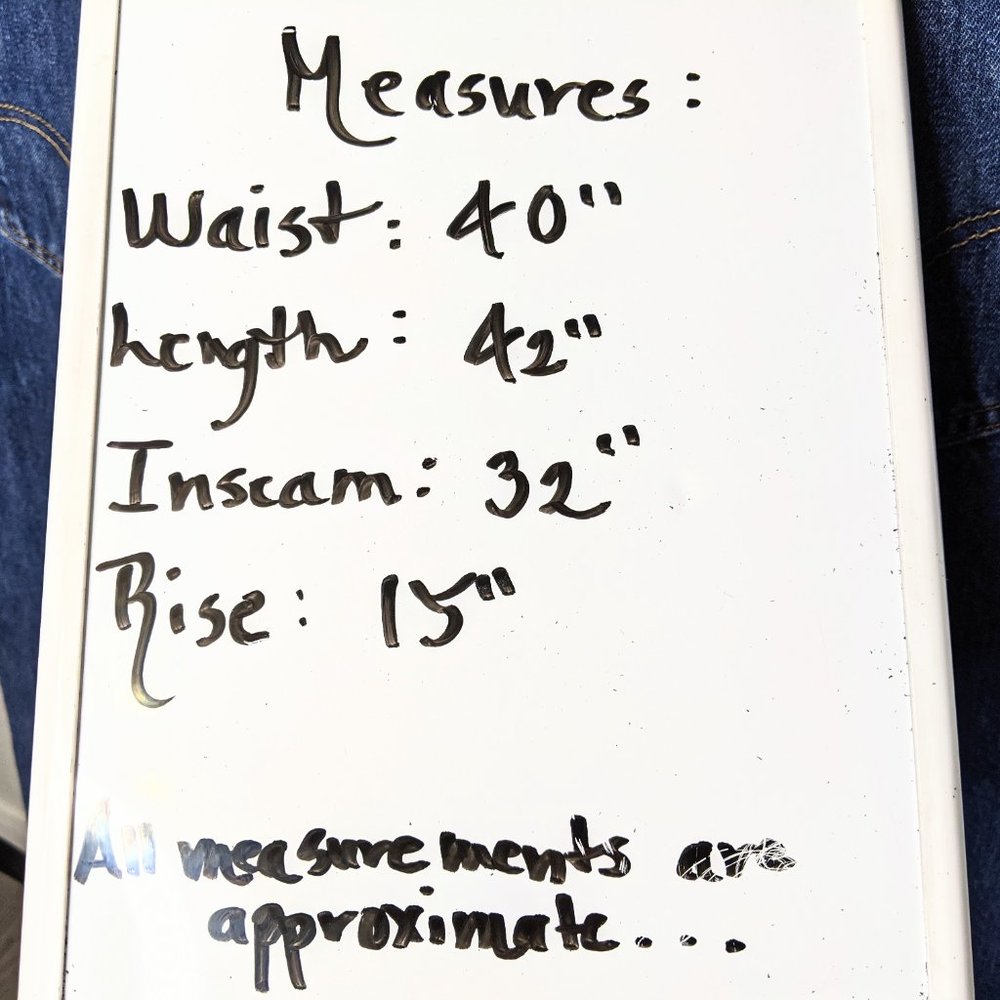 Measures:
Waist: 40"
Length: 42"
Inseam: 32"
Rise: 15"
All measurements are
approximate....